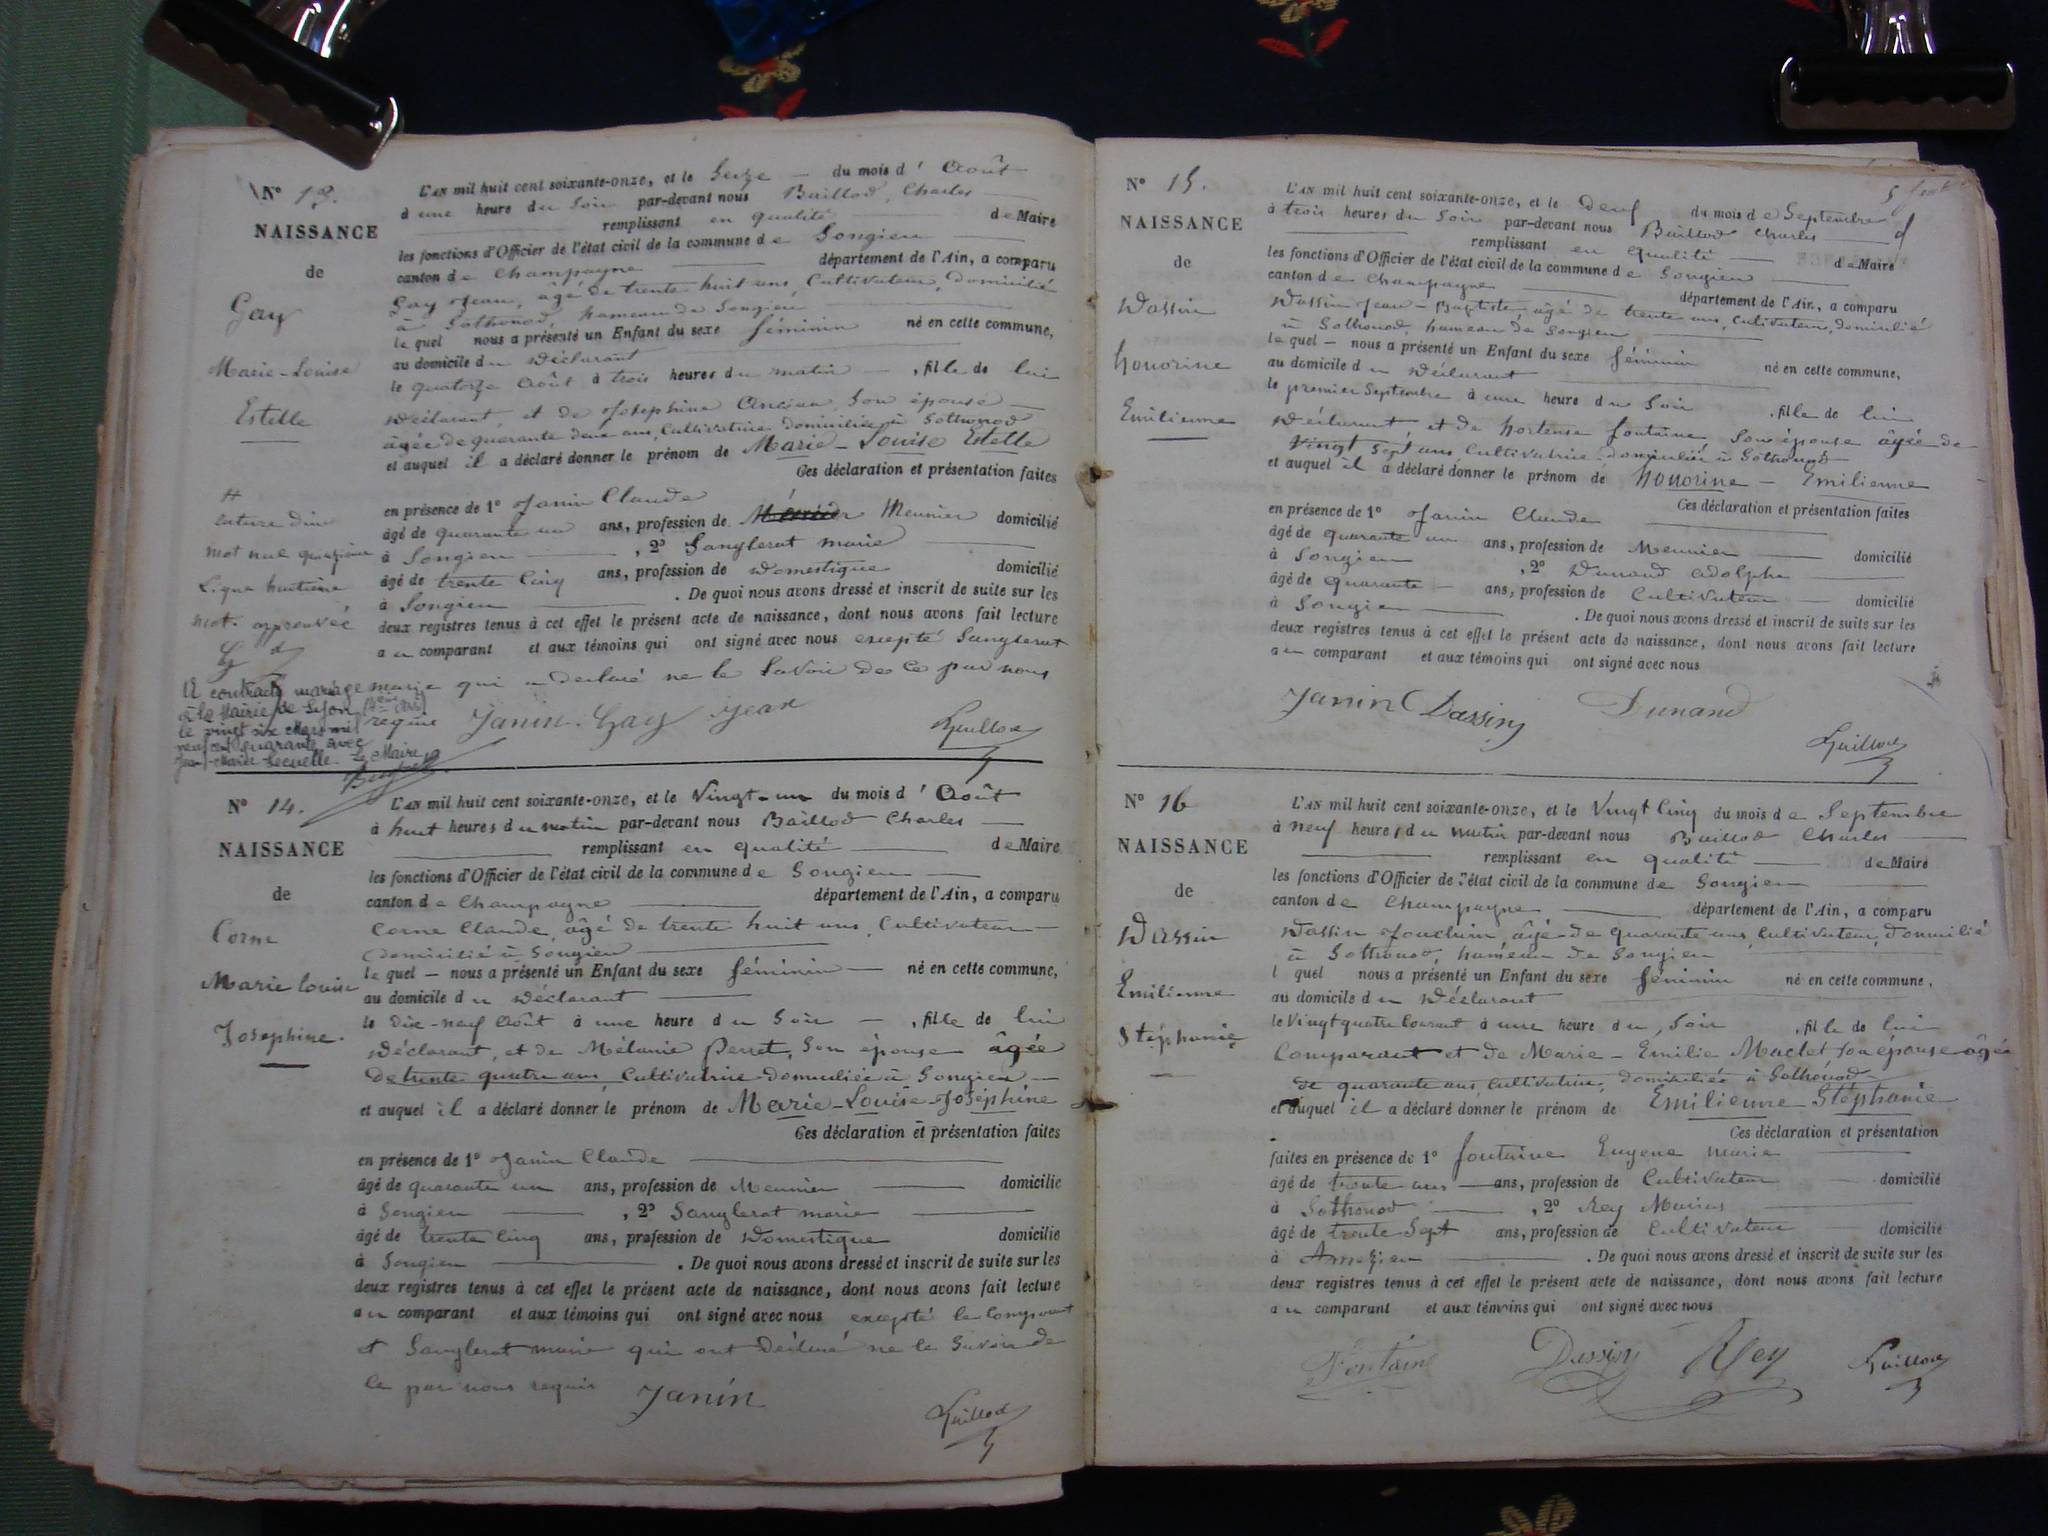 N° 13.
NAISSANCE
de
Gay
Marie-Louise
Estelle
L'AN mil huit cent soixante-onze, et le Seize du mois d' Août
à une heure du Soir par-devant nous Baillod, Charles
remplissant en qualité de Maire
les fonctions d'Officier de l'état civil de la commune de Songieu
canton de Champagne département de l'Ain, a comparu
Gay Jean, âgé de trente huit ans, Cultivateur, domicilié
à Sothonod, hameau de Songieu
le quel nous a présenté un Enfant du sexe féminin né en cette commune,
au domicile du Déclarant
le quatorze Août à trois heures du matin, fille de lui
Déclarant, et de Josephine Ancian, Son épouse
âgée de quarante deux ans, Cultivatrice domiciliée à Sothonod
et auquel il a déclaré donner le prénom de Marie-Louise Estelle
Ces déclaration et présentation faites
en présence de 1° Janin Claude
âgé de quarante un ans, profession de Meunier domicilié
à Songieu, 2° Sanglerat marie
âgé de trente Cinq ans, profession de Domestique domicilié
à Songieu. De quoi nous avons dressé et inscrit de suite sur les
deux registres tenus à cet effet le présent acte de naissance, dont nous avons fait lecture
au comparant et aux témoins qui ont signé avec nous excepté Sanglerat
marie qui a declaré ne le Savoir de ce par nous
requise Janin Gay Jean
rature d'un
mot nul quinzième
Ligne huitième
mot approuvée
A contracté mariage
à la Mairie de Lyon
le vingt six Mars mil
neuf cent quarante avec
Jean-Marie Le Maire
N° 14.
NAISSANCE
de
Corne
Marie louise
Josephine.
L'AN mil huit cent soixante-onze, et le Vingt-un du mois d' Août
à huit heures du matin par-devant nous Baillod Charles
remplissant en qualité de Maire
les fonctions d'Officier de l'état civil de la commune de Songieu
canton de Champagne département de l'Ain, a comparu
Corne Claude, âgé de trente huit ans, Cultivateur
domicilié à Songieu
le quel nous a présenté un Enfant du sexe féminin né en cette commune,
au domicile du Déclarant
le dix-neuf Août à une heure du Soir, fille de lui
Déclarant, et de Mélanie Perret, Son épouse âgée
de trente quatre ans, Cultivatrice domiciliée à Songieu
et auquel il a déclaré donner le prénom de Marie-Louise-Joséphine
Ces déclaration et présentation faites
en présence de 1° Janin Claude
âgé de quarante un ans, profession de Meunier domicilié
à Songieu, 2° Sanglerat marie
âgé de trente Cinq ans, profession de Domestique domicilié
à Songieu. De quoi nous avons dressé et inscrit de suite sur les
deux registres tenus à cet effet le présent acte de naissance, dont nous avons fait lecture
au comparant et aux témoins qui ont signé avec nous excepté le Comparant
et Sanglerat marie qui ont Déclaré ne le Savoir de
ce par nous requis Janin
N° 15.
NAISSANCE
de
Dassin
honorine
Emilienne
L'AN mil huit cent soixante-onze, et le Deuf du mois de Septembre
à trois heures du Soir par-devant nous Baillod Charles
remplissant en qualité de Maire
les fonctions d'Officier de l'état civil de la commune de Songieu
canton de Champagne département de l'Ain, a comparu
Dassin Jean-Baptiste, âgé de trente ans, Cultivateur, domicilié
à Sothonod, hameau de Songieu
le quel nous a présenté un Enfant du sexe féminin
au domicile du Déclarant né en cette commune,
le premier Septembre à une heure du Soir, fille de lui
Déclarant et de hortense fontaine Son épouse âgée de
Vingt Sept ans, Cultivatrice domiciliée à Sothonod
et auquel il a déclaré donner le prénom de honorine - Emilienne
Ces déclaration et présentation faites
en présence de 1° Janin Claude
âgé de quarante un ans, profession de Meunier domicilié
à Songieu, 2° Dunand Adolphe
âgé de quarante ans, profession de Cultivateur domicilié
à Songieu. De quoi nous avons dressé et inscrit de suite sur les
deux registres tenus à cet effet le présent acte de naissance, dont nous avons fait lecture
au comparant et aux témoins qui ont signé avec nous
Janin C Dassin Dunand
N° 16
NAISSANCE
de
Dassin
Emilienne
Stéphanie
L'AN mil huit cent soixante-onze, et le Vingt Cinq du mois de Septembre
à neuf heures du matin par-devant nous Baillod Charles
remplissant en qualité de Maire
les fonctions d'Officier de l'état civil de la commune de Songieu
canton de Champagne département de l'Ain, a comparu
Dassin Joachim âgé de quarante ans, Cultivateur, domicilié
à Sothonod, hameau de Songieu
l quel nous a présenté un Enfant du sexe féminin né en cette commune,
au domicile du Déclarant
le Vingt quatre Courant à une heure du Soir, fille de lui
Comparant et de Marie-Emilie Maclet son épouse âgée
de quarante ans Cultivatrice, domiciliée à Sothonod
et auquel il a déclaré donner le prénom de Emilienne Stéphanie
Ces déclaration et présentation
faites en présence de 1° fontaine Eugene marie
âgé de trente ans ans, profession de Cultivateur domicilié
à Sothonod, 2° Rey Marius
âgé de trente Sept ans, profession de Cultivateur domicilié
à Amezieu. De quoi nous avons dressé et inscrit de suite sur les
deux registres tenus à cet effet le présent acte de naissance, dont nous avons fait lecture
au comparant et aux témoins qui ont signé avec nous
Fontaine Dassin Rey